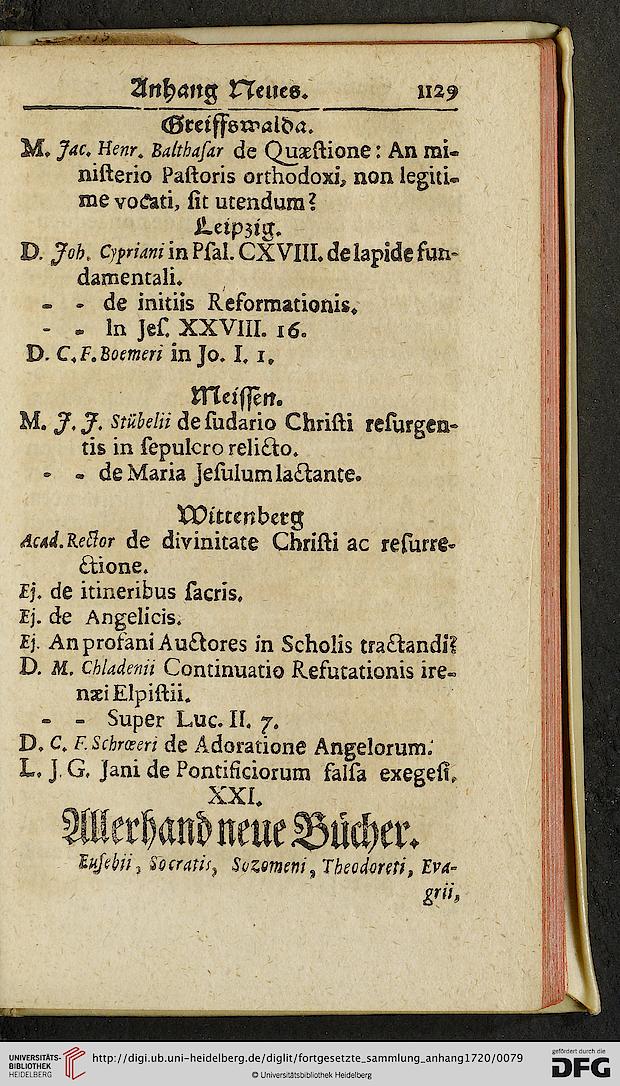 Anhang Neues. 1129
Greiffswalda.
M. Jac. Henr. Balthaſar de Quæſtione: An mi-
niſterio Paſtoris orthodoxi, non legiti-
me vocati, ſit utendum?
Leipzig.
D. Joh. Cypriani in Pſal. CXVIII. de lapide fun-
damentali.
- - de initiis Reformationis.
- - In Jeſ. XXVIII. 16.
D. C. F. Boemeri in Jo. I. 1.
Meiſſen.
M. J. J. Stübelii de ſudario Chriſti reſurgen-
tis in ſepulcro relicto.
- - de Maria Jeſulum lactante.
Wittenberg
Acad. Rector de divinitate Chriſti ac reſurre-
ctione.
Ej. de itineribus ſacris.
Ej. de Angelicis.
Ej. An profani Auctores in Scholis tractandi?
D. M. Chladenii Continuatio Refutationis ire-
næi Elpiſtii.
- - Super Luc. II. 7.
D. C. F. Schrœeri de Adoratione Angelorum.
L. J. G. Jani de Pontificiorum falſa exegeſi.
XXI.
Allerhand neue Bücher.
Euſebii, Socratis, Sozomeni, Theodoreti, Eva-
grii,
UNIVERSITÄTS-
BIBLIOTHEK
HEIDELBERG
http://digi.ub.uni-heidelberg.de/diglit/fortgesetzte_sammlung_anhang1720/0079
© Universitätsbibliothek Heidelberg
gefördert durch die
DFG